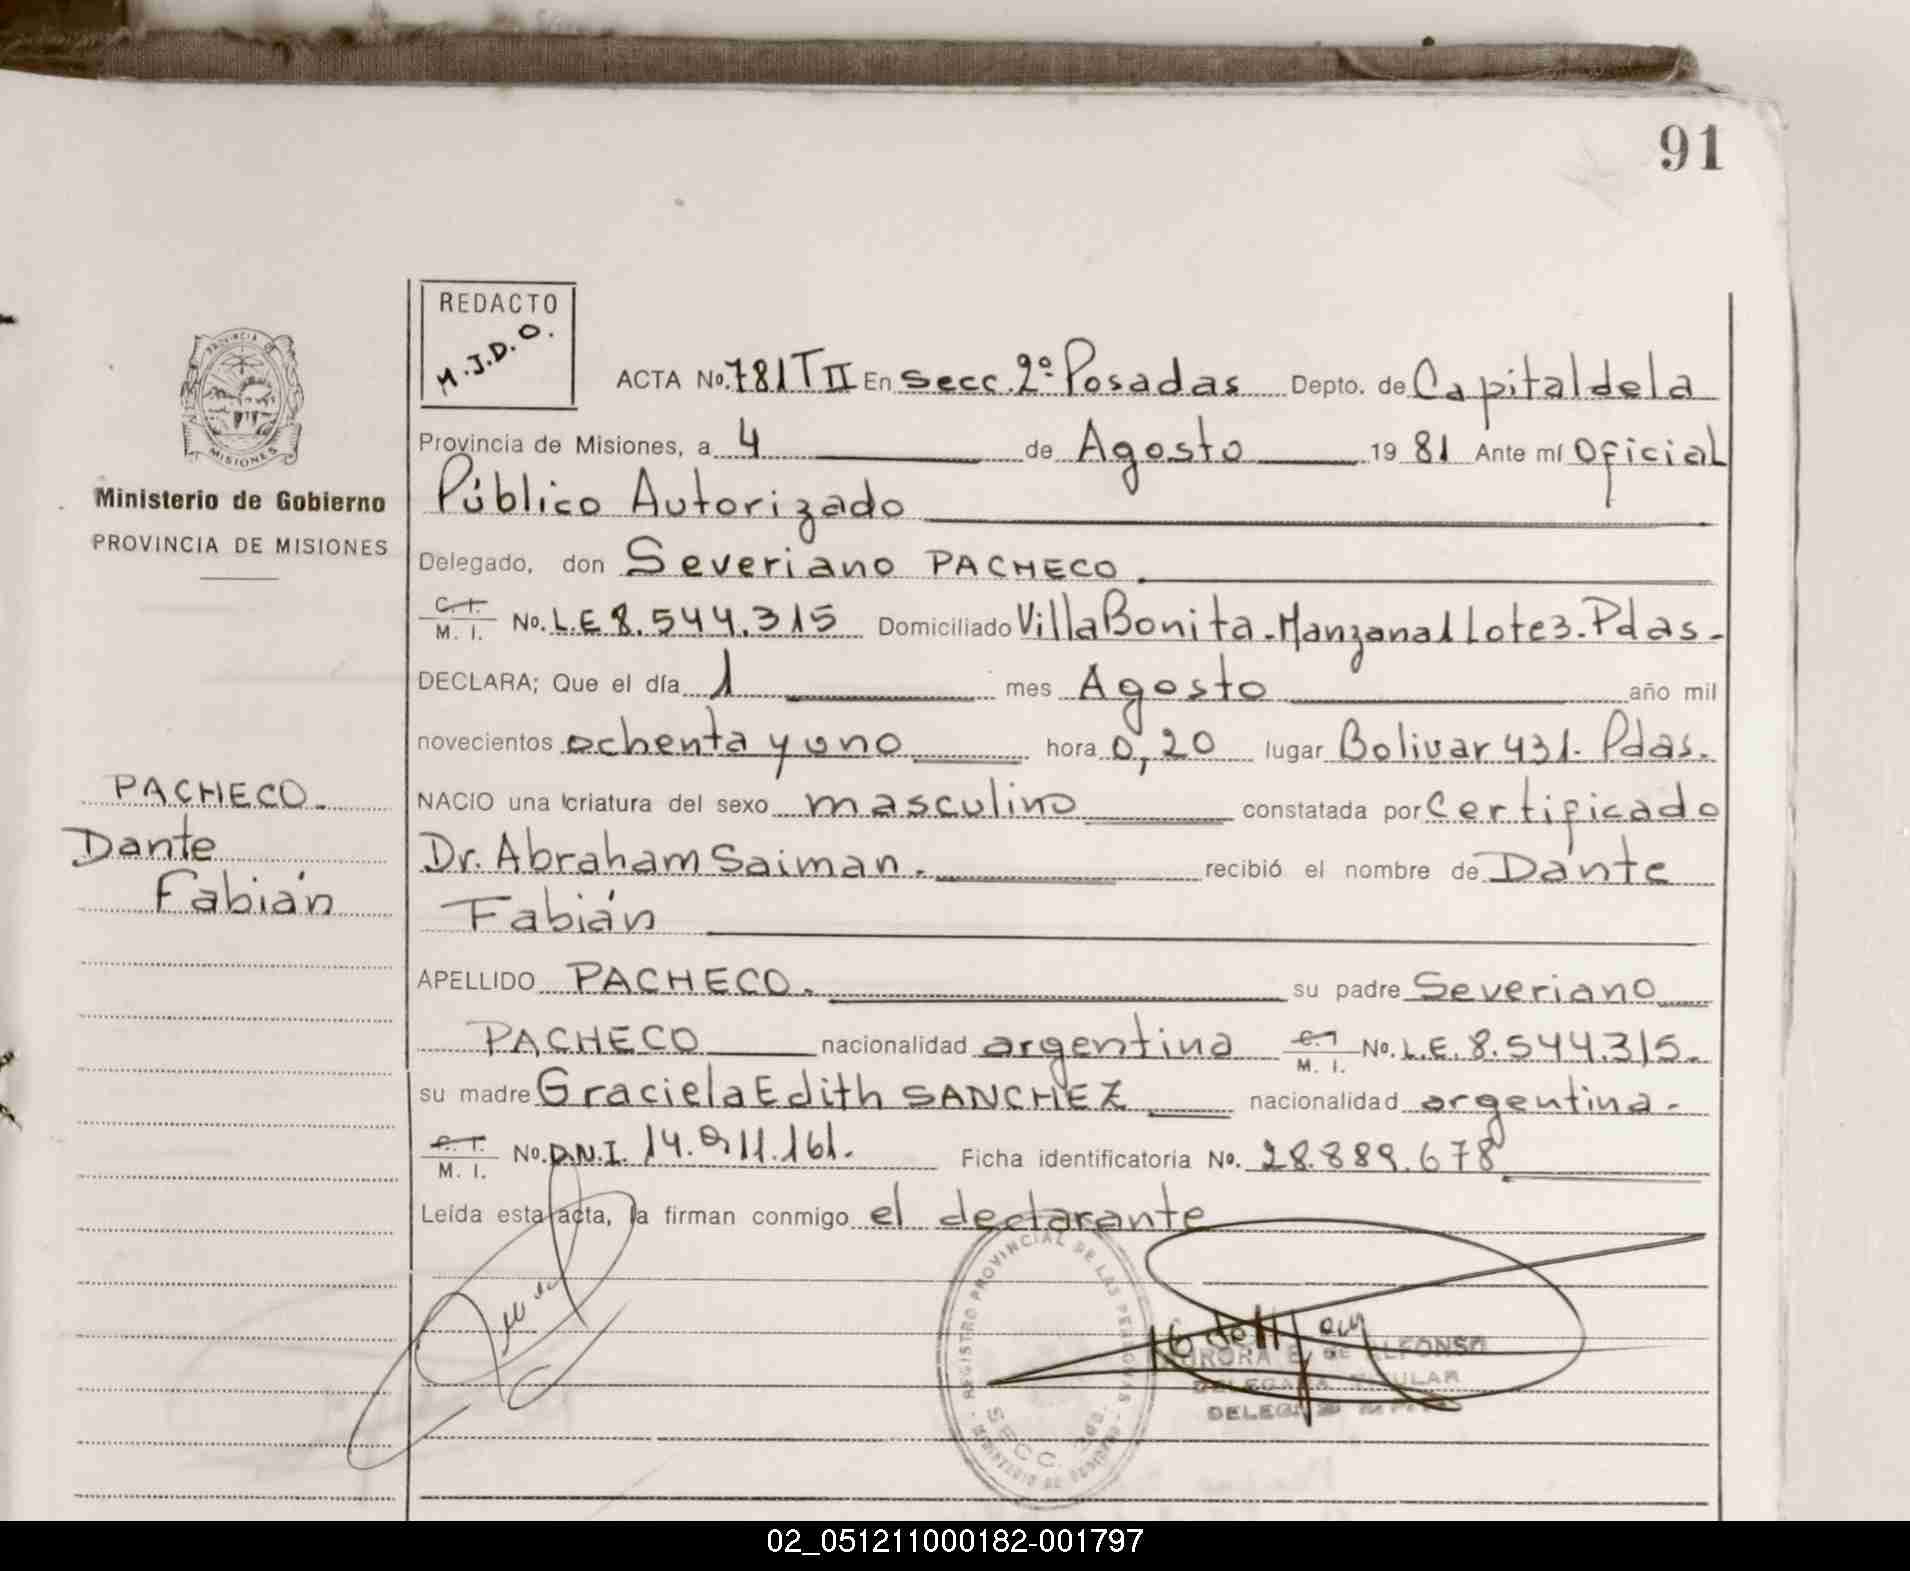 91
REDACTO
M.J.D.O.
ACTA No. 781 T II En Secc. 2º Posadas Depto. de Capital de la
Provincia de Misiones, a 4 de Agosto 19 81 Ante mí Oficial
Público Autorizado
Delegado, don Severiano PACHECO
C. I.
M. I. No. L.E 8.544.315 Domiciliado Villa Bonita - Manzana 1 Lote 3. Pdas -
DECLARA; Que el día 1 mes Agosto año mil
novecientos ochenta y uno hora 0,20 lugar Bolivar 431. Pdas.
NACIO una criatura del sexo masculino constatada por Certificado
Dr. Abraham Saiman. recibió el nombre de Dante
Fabián
APELLIDO PACHECO. su padre Severiano
PACHECO nacionalidad argentina C. I.
M. I. No. L.E. 8.544.315.
su madre Graciela Edith SANCHEZ nacionalidad argentina -
C. I.
M. I. No. D.N.I. 14.911.161. Ficha identificatoria No. 28.889.678
Leída esta acta, la firman conmigo el declarante
PROVINCIA
MISIONES
Ministerio de Gobierno
PROVINCIA DE MISIONES
PACHECO.
Dante
Fabián
REGISTRO PROVINCIAL DE LAS PERSONAS
SECC. 2da.
AURORA E. DE ALFONSO
DELEGADA TITULAR
02_051211000182-001797